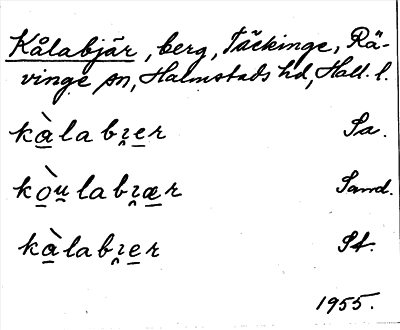 Kålabjär, berg, Täckinge, Rä-
vinge sn, Halmstads hd, Hall. l.
kàlabɪer Sa.
kòulabɪær Sand.
kàlabɪer St.
1955.